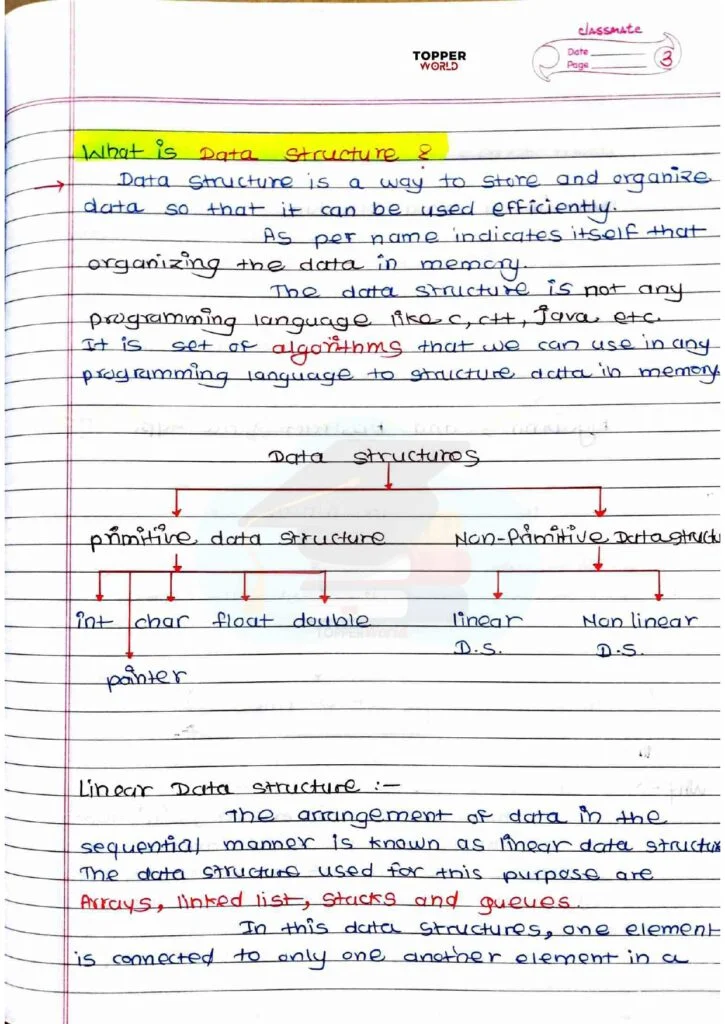 classmate
TOPPER
WORLD
Date
Page 3
What is Data Structure ?
Data structure is a way to store and organize
data so that it can be used efficiently.
As per name indicates itself that
organizing the data in memory.
The data structure is not any
programming language like c, c++, Java etc.
It is set of algorithms that we can use in any
programming language to structure data in memory
Data structures
primitive data structure Non-Primitive Datastructu
int char float double linear Non linear
D.S. D.S.
pointer
Linear Data structure :-
The arrangement of data in the
sequential manner is known as linear data structu
The data structure used for this purpose are
Arrays, linked list, stacks and queues.
In this data structures, one element
is connected to only one another element in a